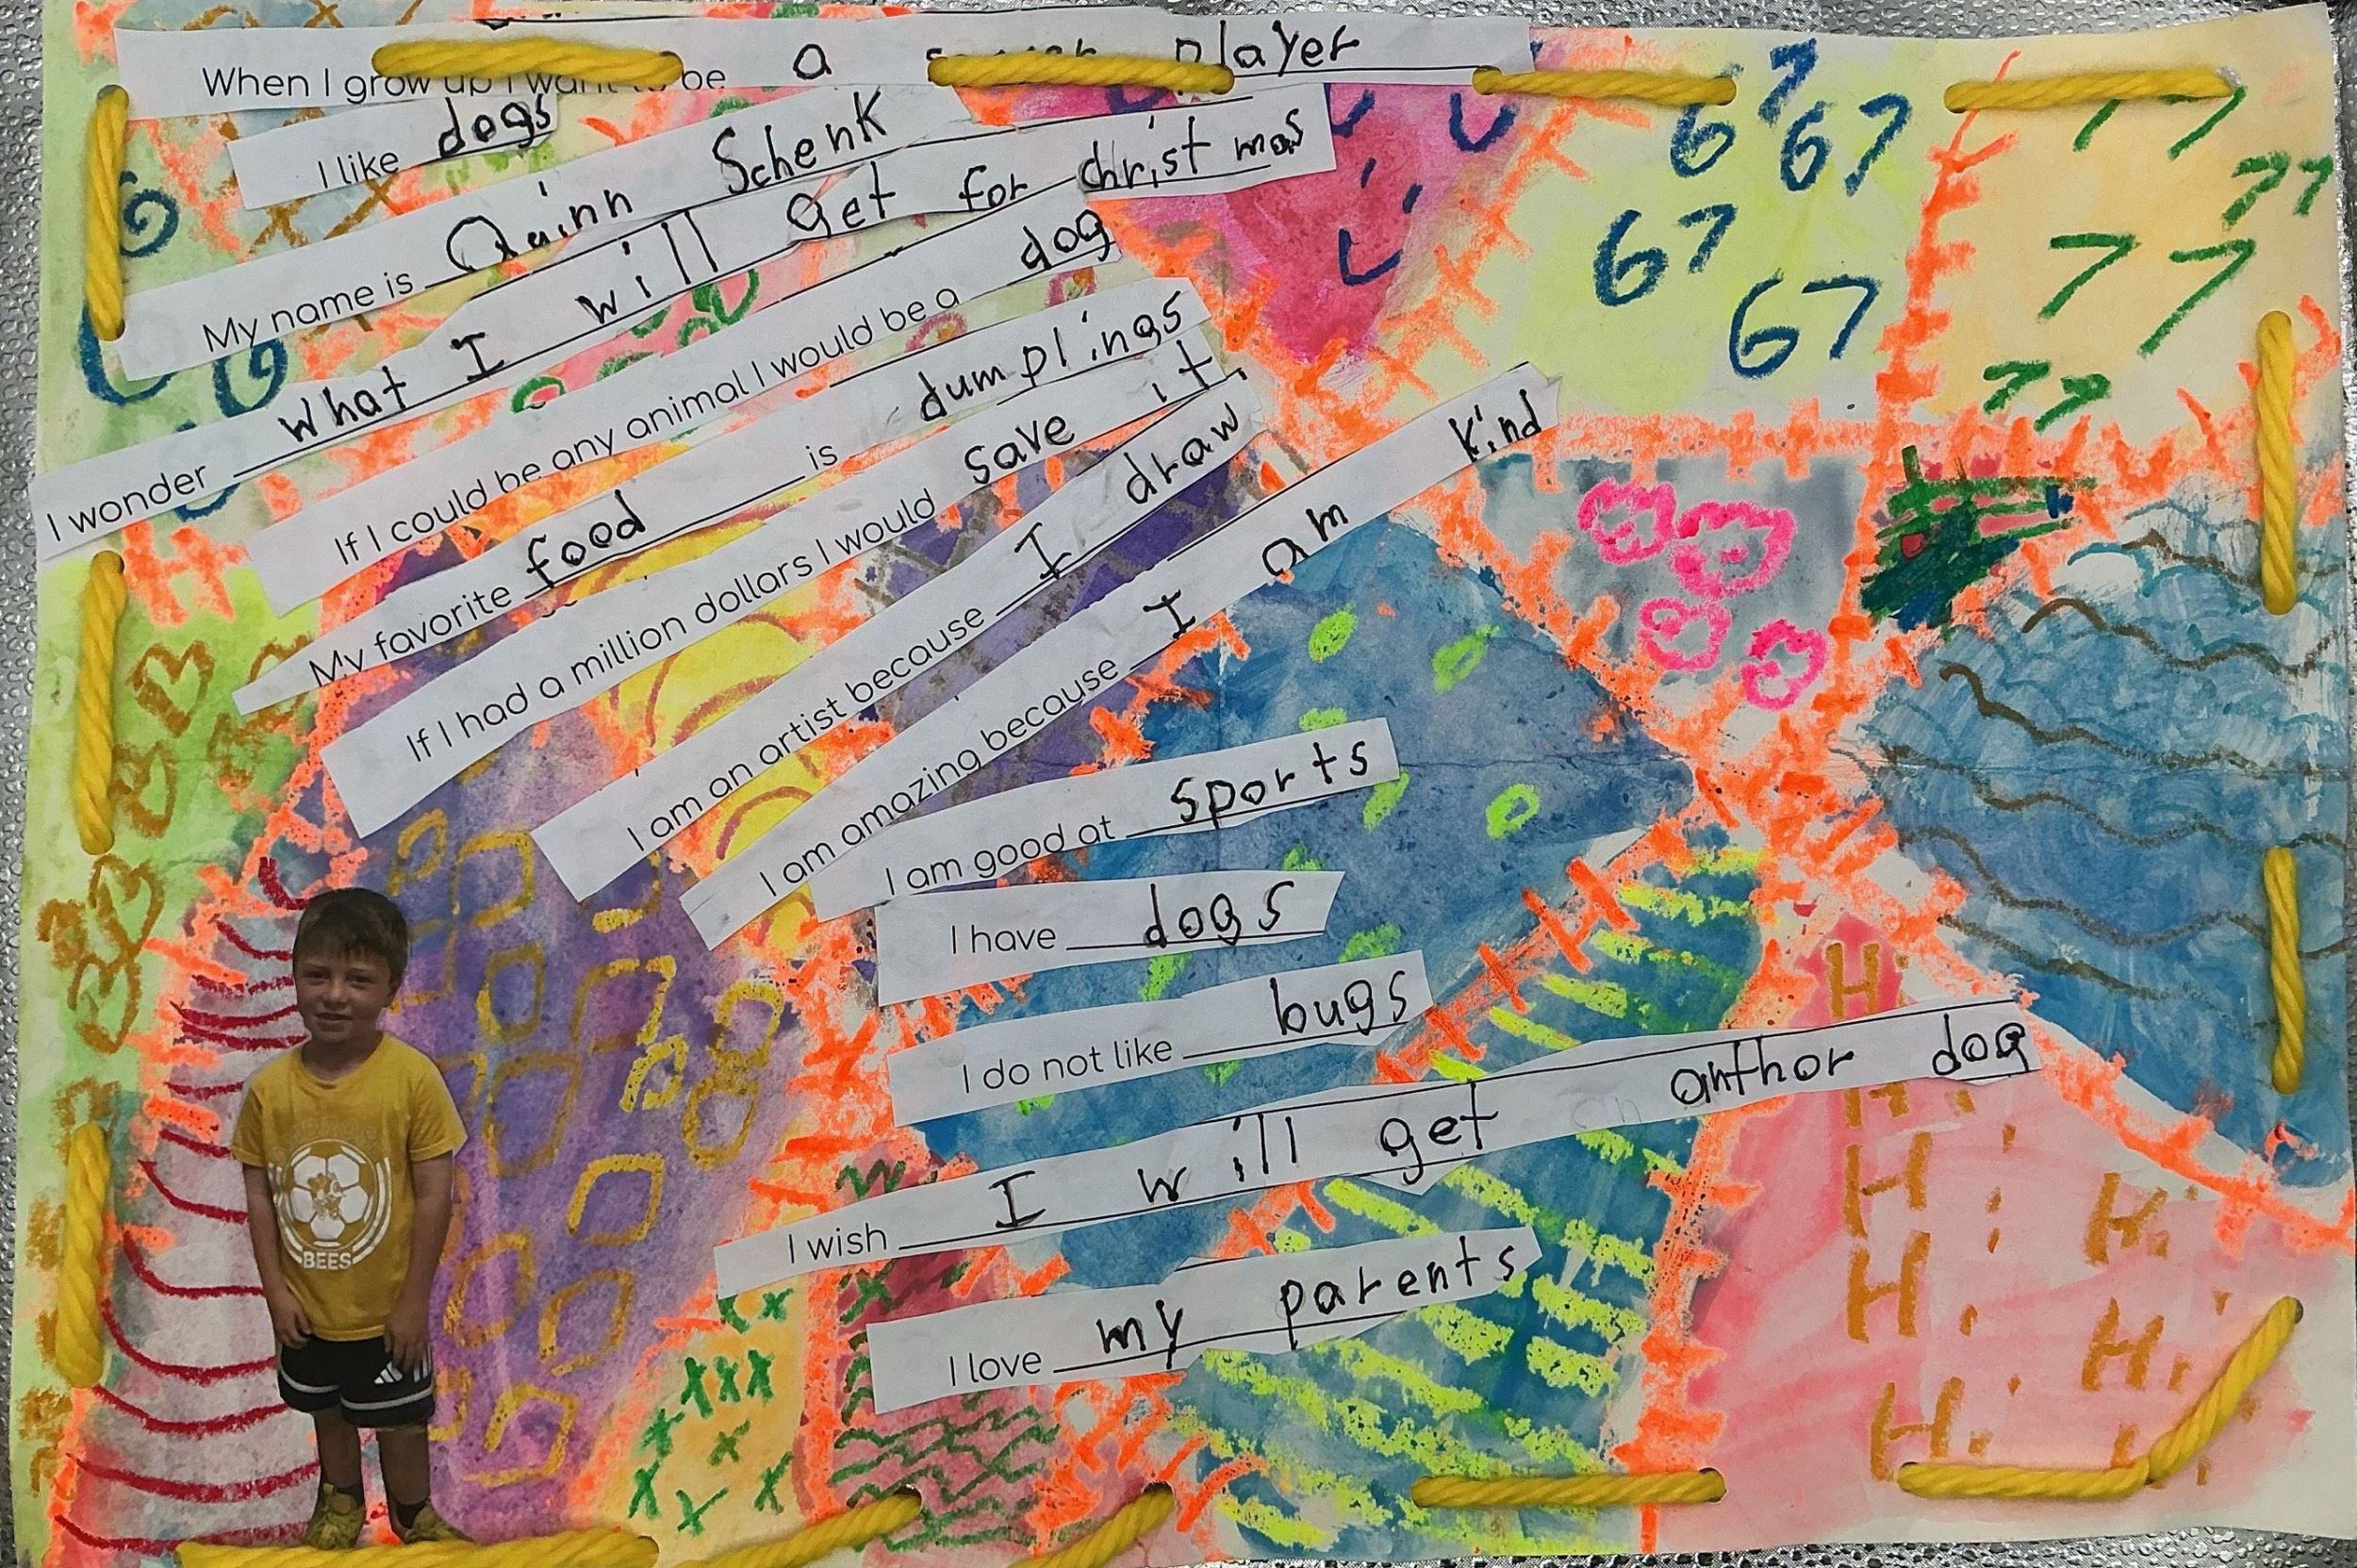 When I grow up I want to be a soccer player
I like dogs
My name is Quinn Schenk
I wonder what I will get for christmas
If I could be any animal I would be a dog
My favorite food is dumplings
If I had a million dollars I would save it.
I am an artist because I draw
I am amazing because I am kind
I am good at sports
I have dogs
I do not like bugs
I wish I will get anthor dog
I love my parents
67
67
67
67
77
77
77
77
BEES
Hi
Hi
Hi
Hi
Hi
Hi
XXX